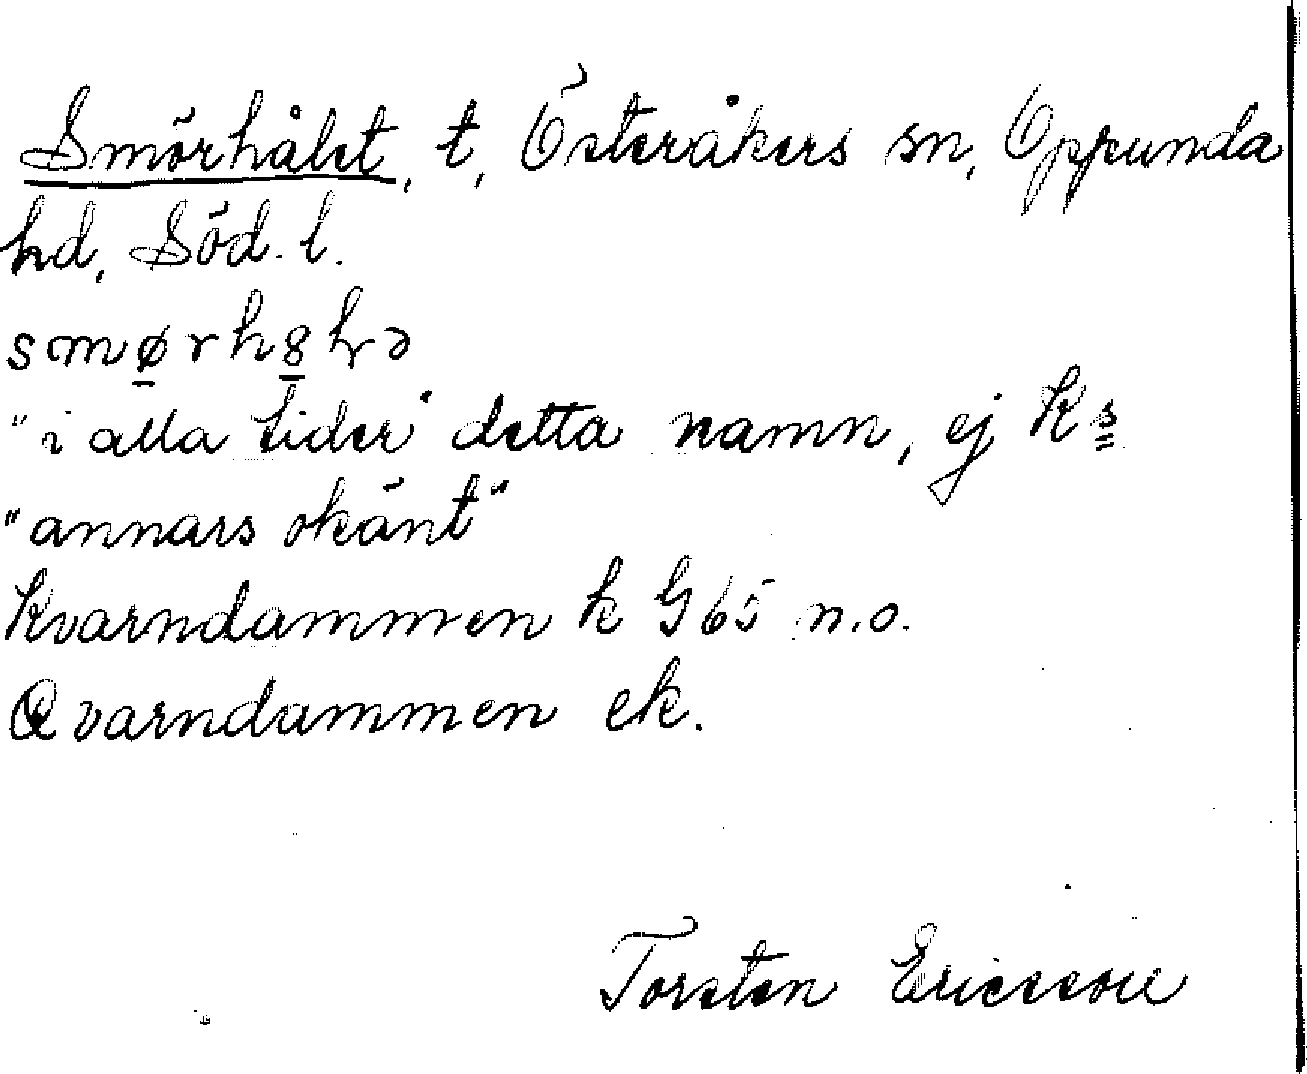 Smörhålet, t, Österåkers sn, Oppunda
hd, Söd. l.
"i alla tider" detta namn, ej Ks
"annars okänt"
Kvarndammen k G 65 n.o.
Qvarndammen ek.
Torsten Ericsson